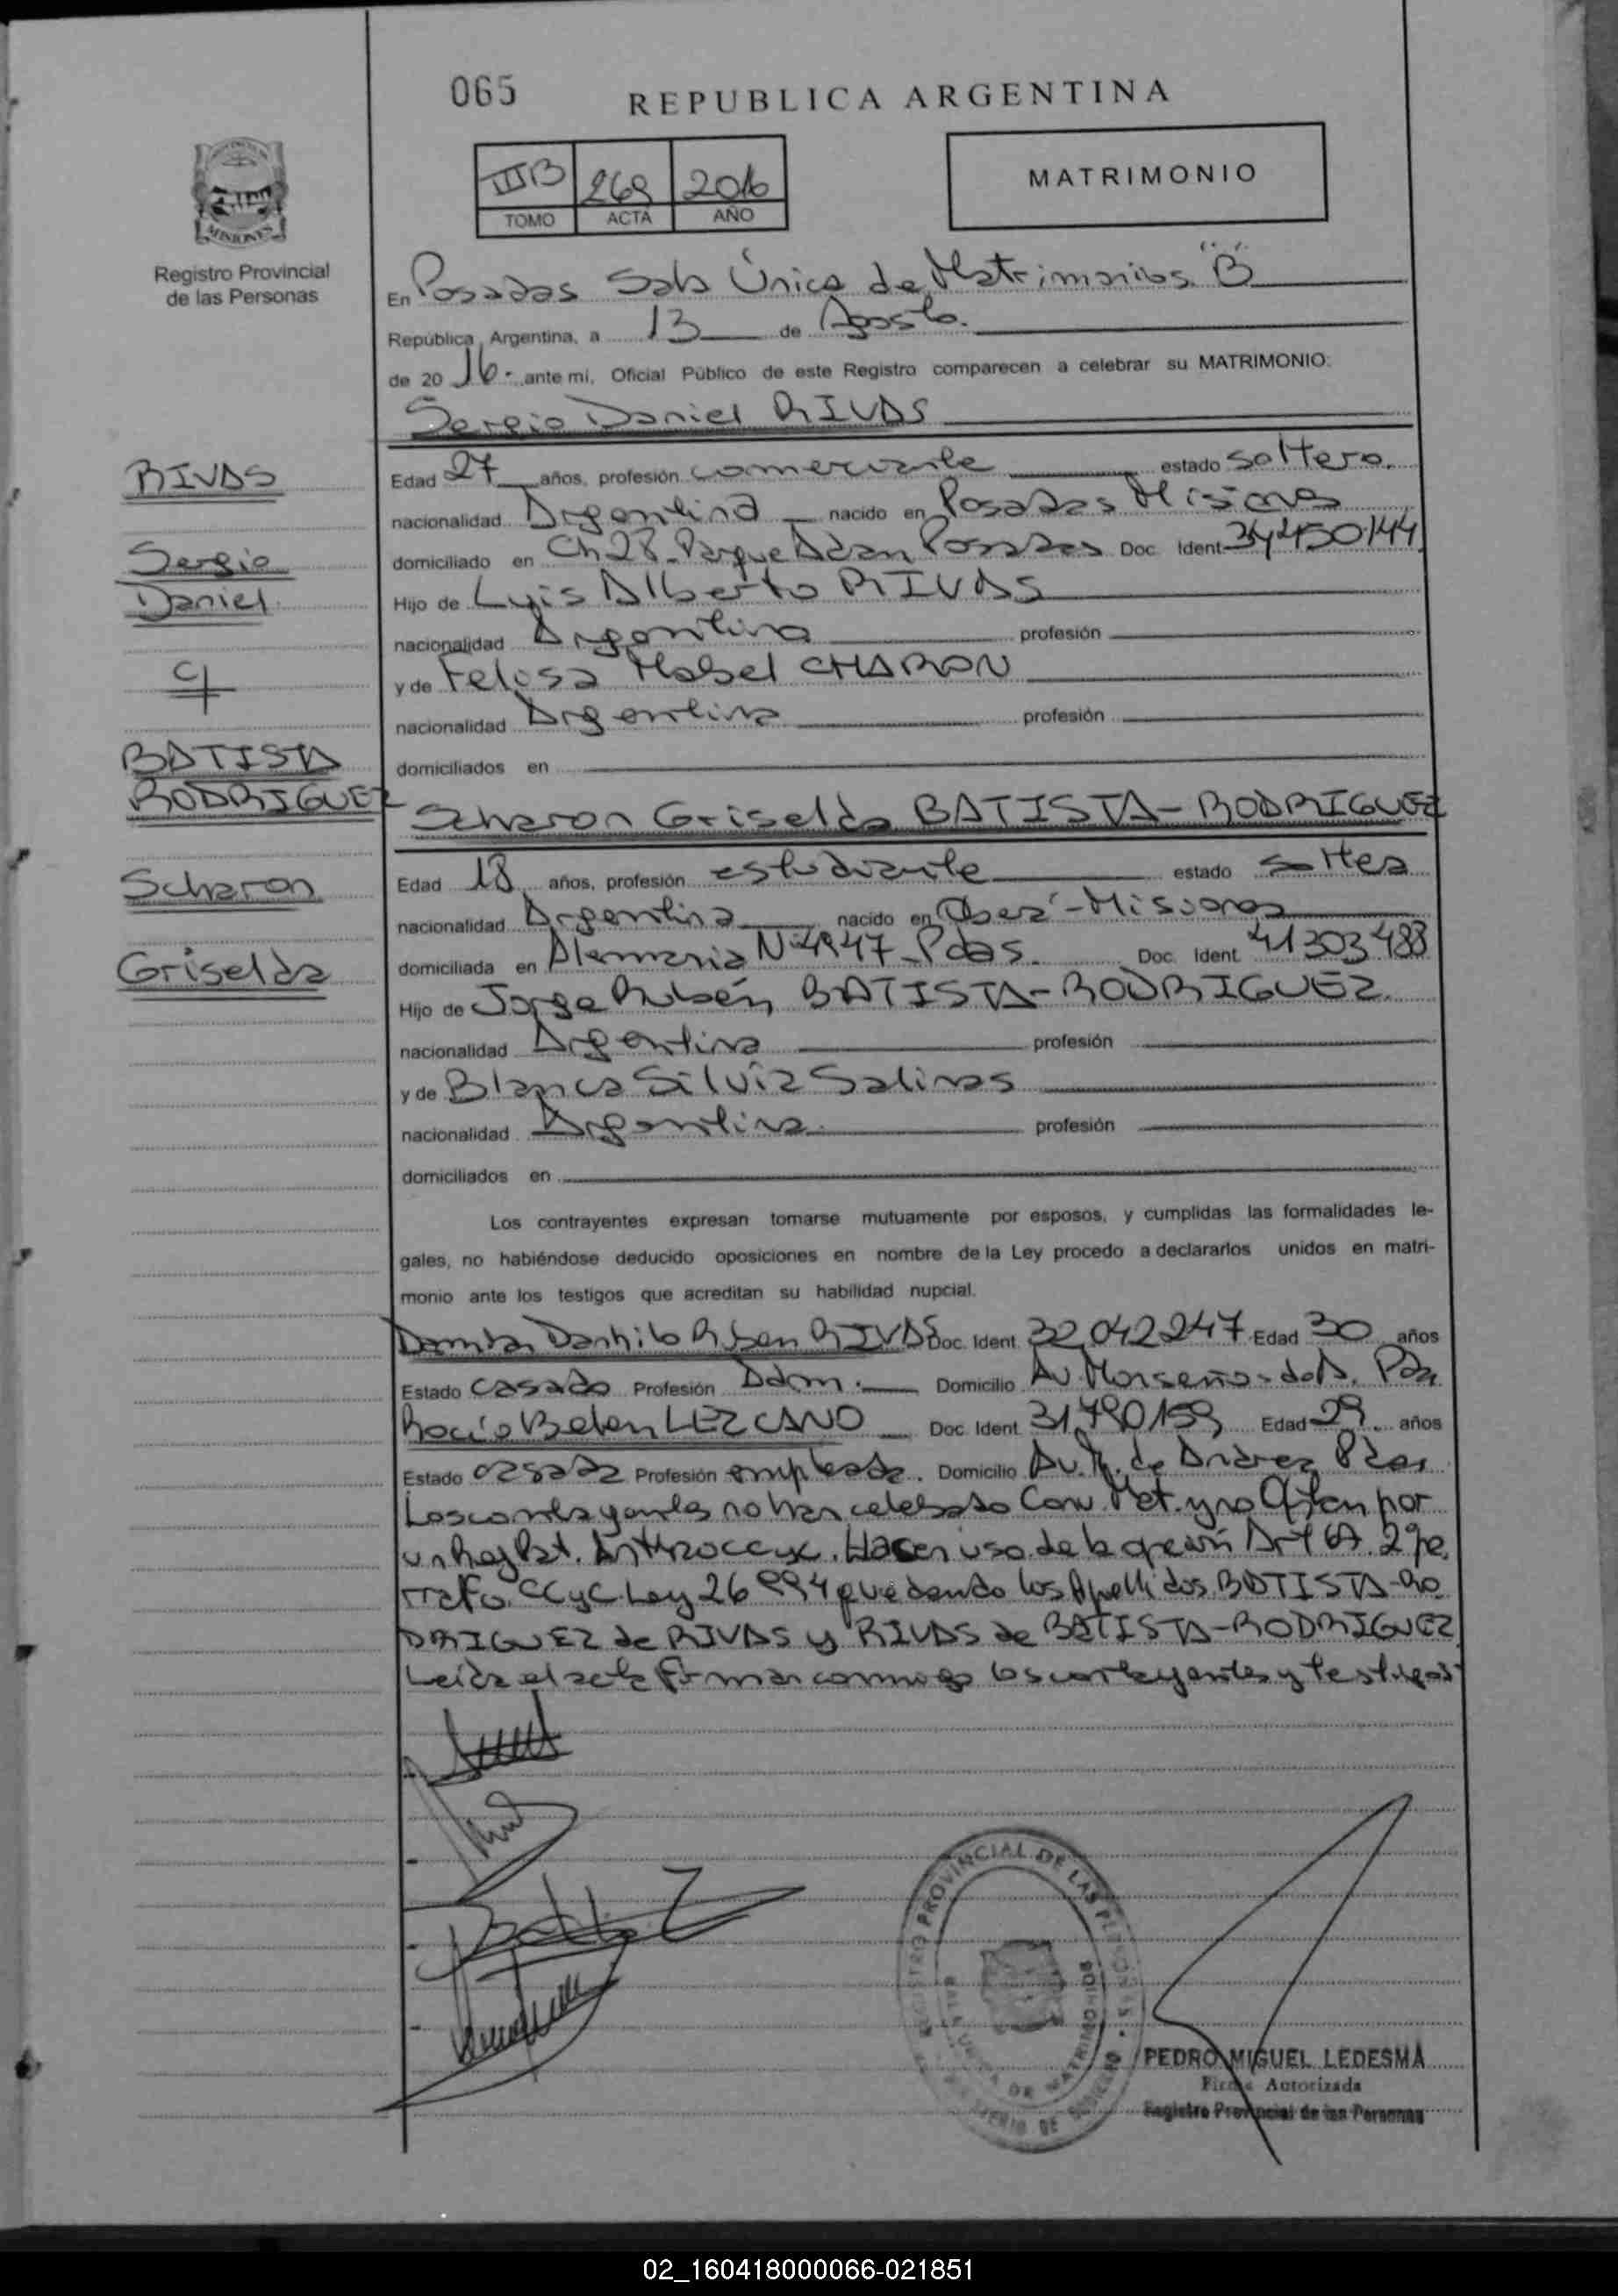 065
REPUBLICA ARGENTINA
IIIB 269 2016
TOMO ACTA AÑO
MATRIMONIO
MISIONES
Registro Provincial
de las Personas
En Posadas Sala Única de Matrimonios "B"
República Argentina, a 13 de Agosto.
de 20 16.- ante mi, Oficial Público de este Registro comparecen a celebrar su MATRIMONIO:
Sergio Daniel RIVAS
RIVAS
Sergio
Daniel
c/
BATISTA
RODRIGUEZ
Scharon
Griselda
Edad 27 años, profesión comerciante estado soltero.
nacionalidad Argentina nacido en Posadas Misiones
domiciliado en Ch 28 - Parque Adam Posadas Doc. Ident. 34450144
Hijo de Luis Alberto RIVAS
nacionalidad Argentina profesión
y de Felisa Mabel CHARON
nacionalidad Argentina profesión
domiciliados en
Scharon Griselda BATISTA-RODRIGUEZ
Edad 18 años, profesión estudiante estado soltera
nacionalidad Argentina nacido en Oberá-Misiones
domiciliada en Alemania N° 4947 - Pdas. Doc. Ident. 41303488
Hijo de Jorge Rubén BATISTA-RODRIGUEZ.
nacionalidad Argentina profesión
y de Blanca Silvia Salinas
nacionalidad Argentina profesión
domiciliados en
Los contrayentes expresan tomarse mutuamente por esposos, y cumplidas las formalidades le-
gales, no habiéndose deducido oposiciones en nombre de la Ley procedo a declararlos unidos en matri-
monio ante los testigos que acreditan su habilidad nupcial.
Ruben RIVAS Doc. Ident. 32.042.247 Edad 30 años
Estado casado Profesión Adm. Domicilio Av. Monseñor
Rocío Belen LEZCANO Doc. Ident. 31.790.159 Edad 29 años
Estado casada Profesión empleada. Domicilio Av. de Pdas
Los contrayentes no han celebrado Conv. Mat. y no Optan por
un Reg Pat. Hacen uso de la opción Art 67. 2° pá
rrafo CCyC Ley 26994 quedando los Apellidos BATISTA-RO
DRIGUEZ de RIVAS y RIVAS de BATISTA-RODRIGUEZ
Leída el acta firman conmigo los contrayentes y testigos
REGISTRO PROVINCIAL DE LAS PERSONAS
PEDRO MIGUEL LEDESMA
Firma Autorizada
Registro Provincial de las Personas
02_160418000066-021851